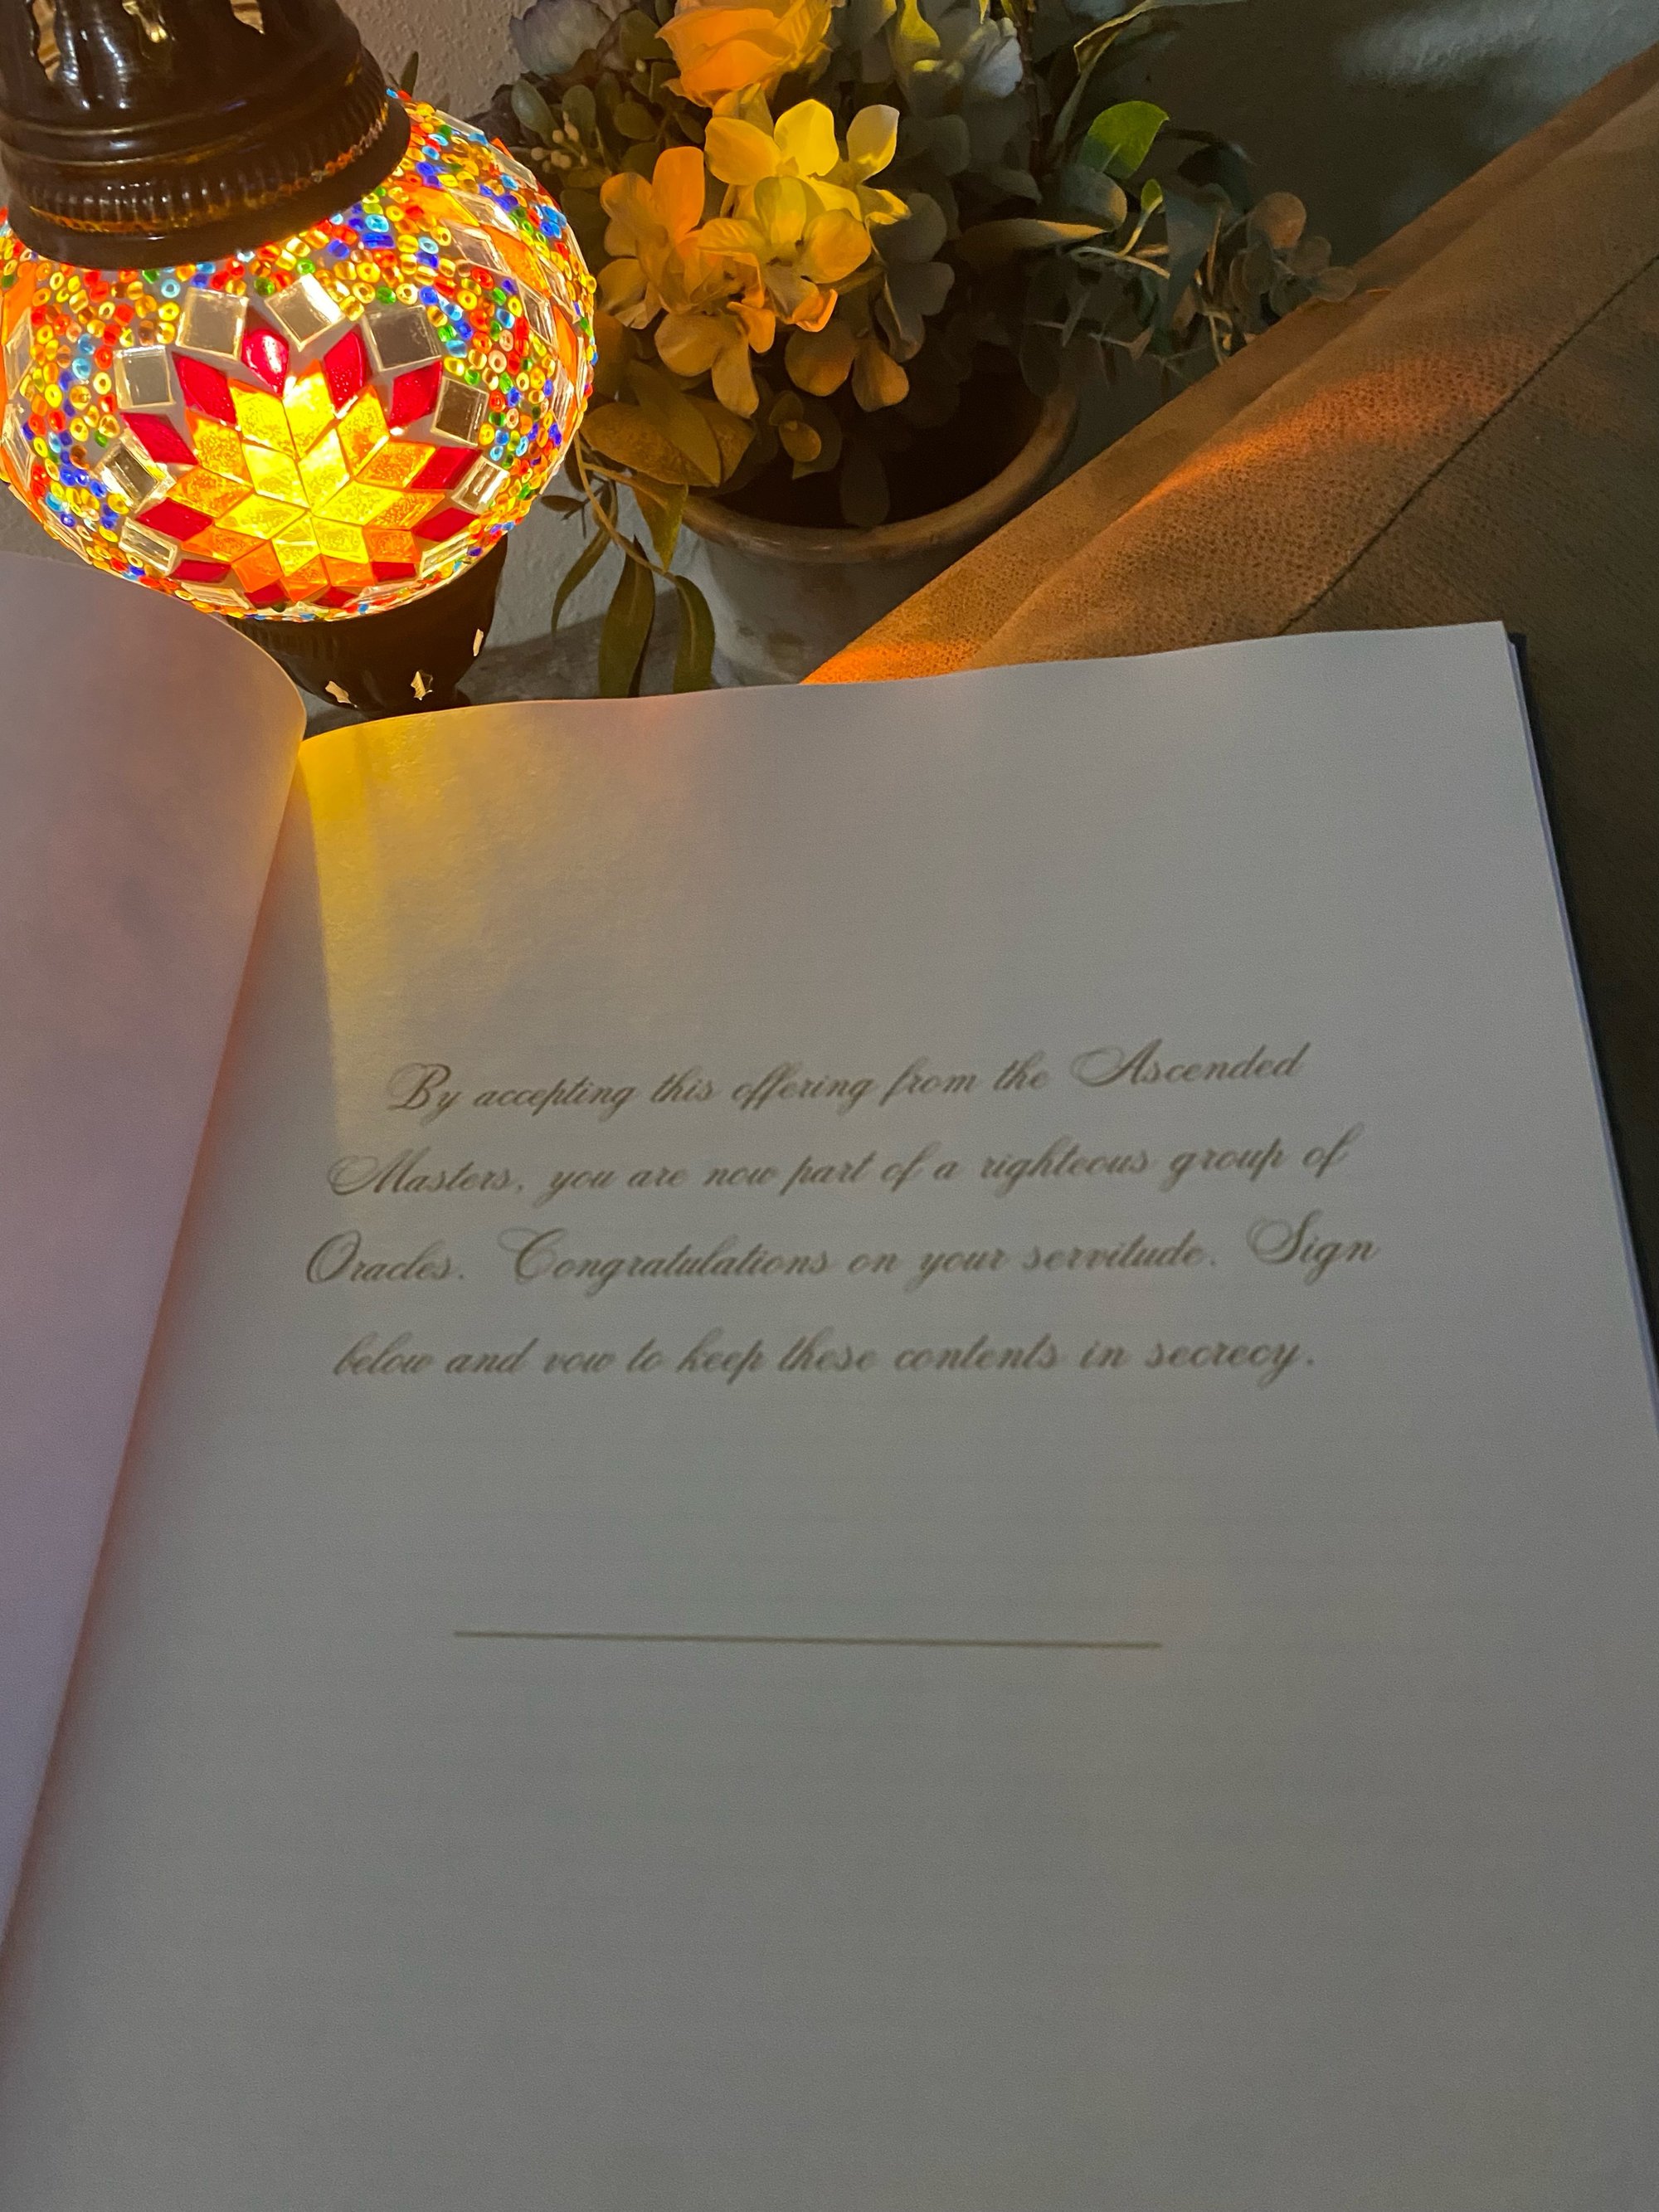 By accepting this offering from the Ascended
Masters, you are now part of a righteous group of
Oracles. Congratulations on your servitude. Sign
below and vow to keep these contents in secrecy.